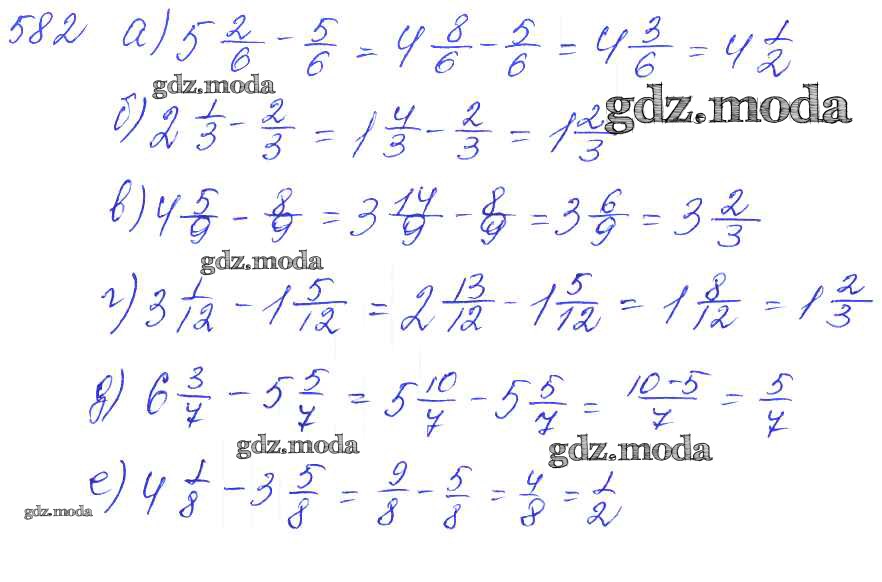 582 а) 5 2/6 - 5/6 = 4 8/6 - 5/6 = 4 3/6 = 4 1/2
gdz.moda
б) 2 1/3 - 2/3 = 1 4/3 - 2/3 = 1 2/3
gdz.moda
в) 4 5/9 - 8/9 = 3 14/9 - 8/9 = 3 6/9 = 3 2/3
gdz.moda
г) 3 1/12 - 1 5/12 = 2 13/12 - 1 5/12 = 1 8/12 = 1 2/3
д) 6 3/7 - 5 5/7 = 5 10/7 - 5 5/7 = 10-5/7 = 5/7
gdz.moda gdz.moda
е) 4 1/8 - 3 5/8 = 9/8 - 5/8 = 4/8 = 1/2
gdz.moda